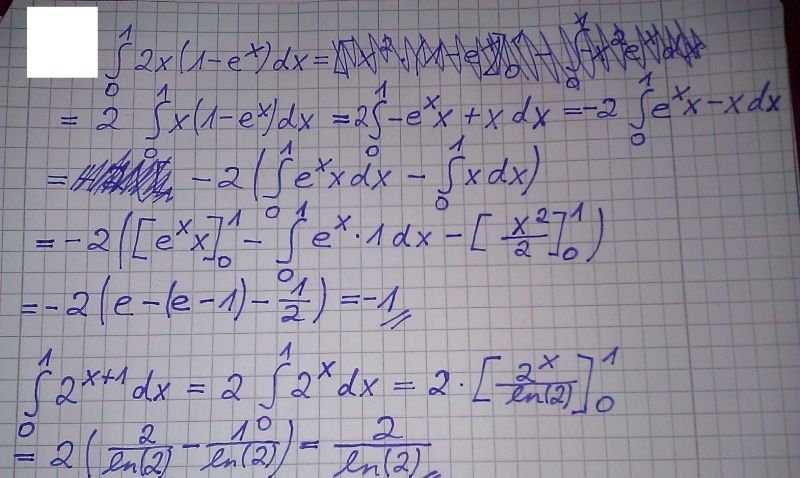 ∫₀¹ 2x(1-eˣ)dx =
= 2 ∫₀¹ x(1-eˣ)dx = 2∫₀¹ -eˣx + x dx = -2 ∫₀¹ eˣx - x dx
= -2 (∫₀¹ eˣx dx - ∫₀¹ x dx)
= -2 ([eˣx]₀¹ - ∫₀¹ eˣ·1 dx - [x²/2]₀¹)
= -2 (e - (e - 1) - 1/2) = -1
∫₀¹ 2ˣ⁺¹ dx = 2 ∫₀¹ 2ˣ dx = 2 · [2ˣ/ln(2)]₀¹
= 2 (2/ln(2) - 1/ln(2)) = 2/ln(2)